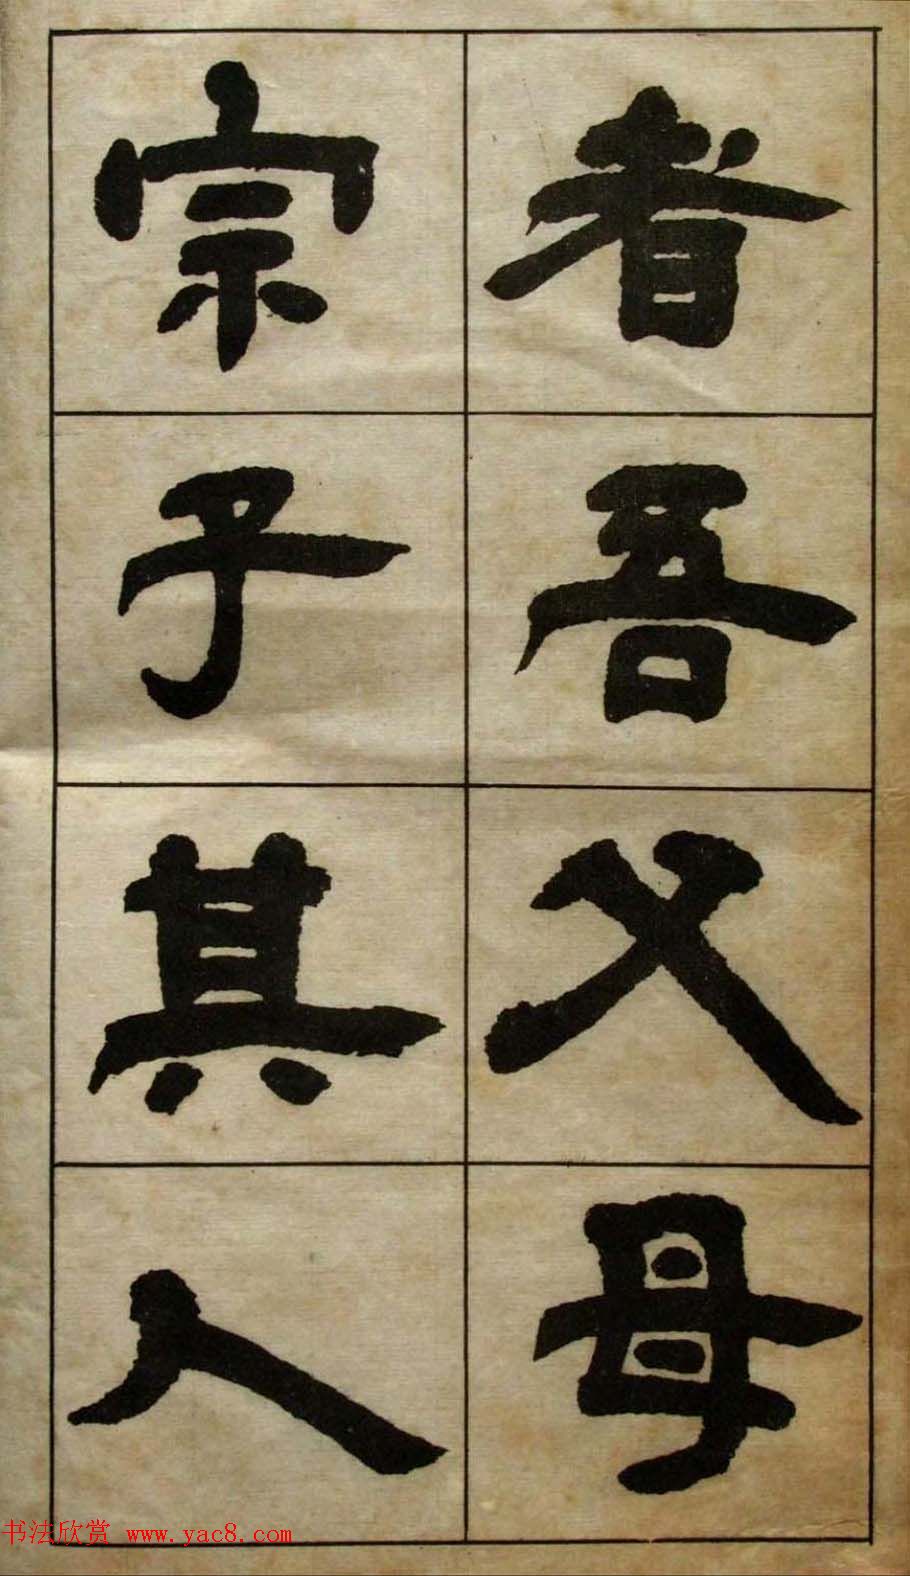 者吾父母
宗子其人
书法欣赏 www.yac8.com